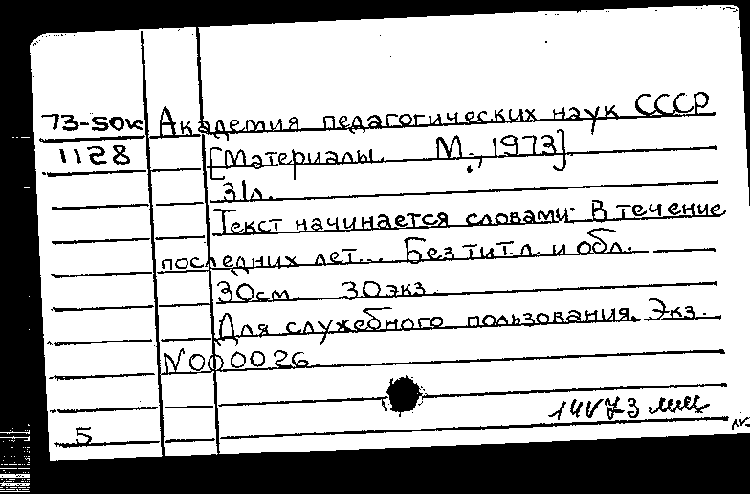 73-50к Академия педагогических наук СССР
1128 [Материалы. М., 1973].
31л.
Текст начинается словами: В течение
последних лет... Без тит.л. и обл.
30см 30экз.
Для служебного пользования. Экз.
N000026
14V73
5